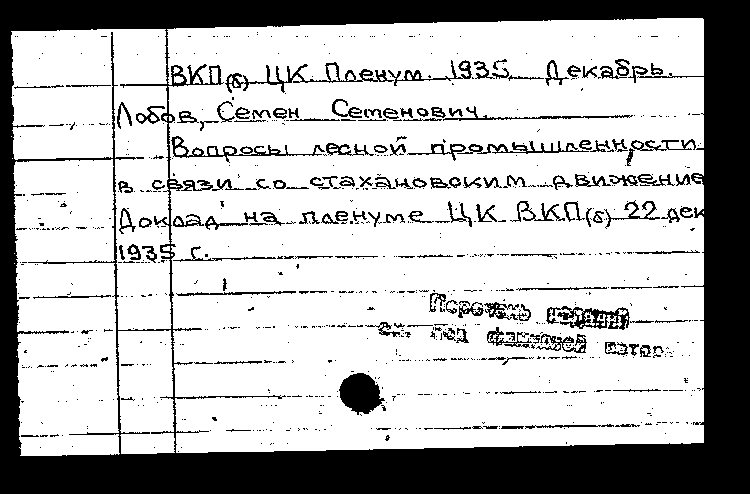 ВКП(б) ЦК. Пленум. 1935. Декабрь.
Лобов, Семен Семенович.
Вопросы лесной промышленности
в связи со стахановским движение
Доклад на пленуме ЦК ВКП(б) 22 дек
1935 г.
Перечень изданий
см. под фамилией автора